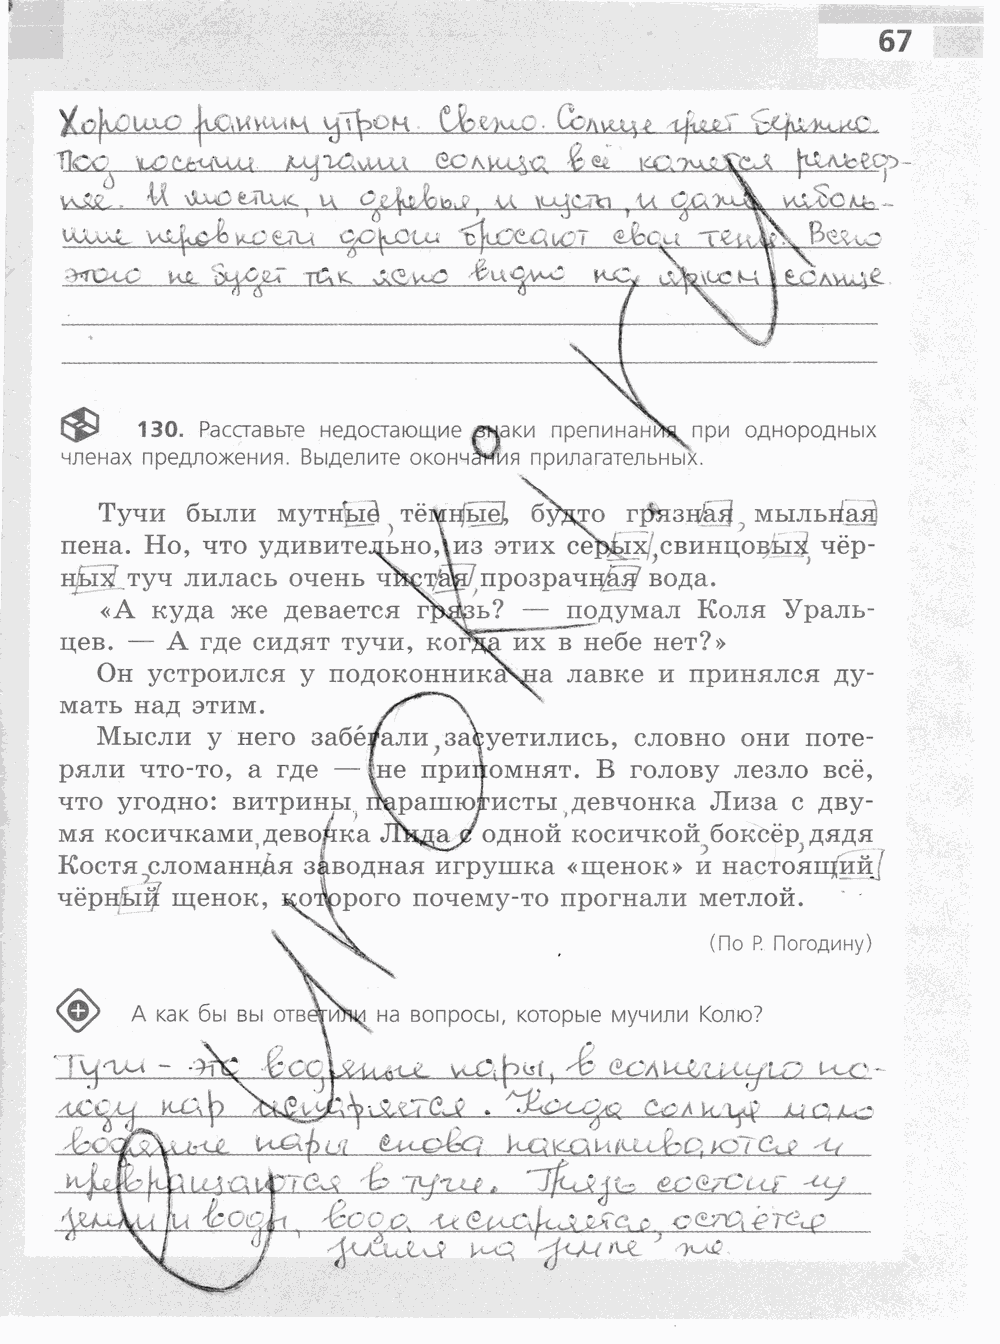 67
Хорошо ранним утром. Свежо. Солнце греет бережно.
Под косыми лучами солнца всё кажется рельеф-
нее. И мостик, и деревья, и кусты, и даже неболь-
шие неровности дороги бросают свои тени. Всего
этого не будет так ясно видно на ярком солнце
130. Расставьте недостающие знаки препинания при однородных
членах предложения. Выделите окончания прилагательных.
Тучи были мутные, тёмные, будто грязная, мыльная
пена. Но, что удивительно, из этих серых, свинцовых, чёр-
ных туч лилась очень чистая, прозрачная вода.
«А куда же девается грязь? — подумал Коля Ураль-
цев. — А где сидят тучи, когда их в небе нет?»
Он устроился у подоконника на лавке и принялся ду-
мать над этим.
Мысли у него забе́гали, засуетились, словно они поте-
ряли что-то, а где — не припомнят. В голову лезло всё,
что угодно: витрины, парашютисты, девчонка Лиза с дву-
мя косичками, девочка Лида с одной косичкой, боксёр, дядя
Костя, сломанная заводная игрушка «щенок» и настоящий
чёрный щенок, которого почему-то прогнали метлой.
(По Р. Погодину)
А как бы вы ответили на вопросы, которые мучили Колю?
Тучи – это водяные пары, в солнечную по-
году пар испаряется. Когда солнца мало
водяные пары снова накапливаются и
превращаются в тучи. Грязь состоит из
земли и воды, вода испаряется, остаётся
земля на земле же.